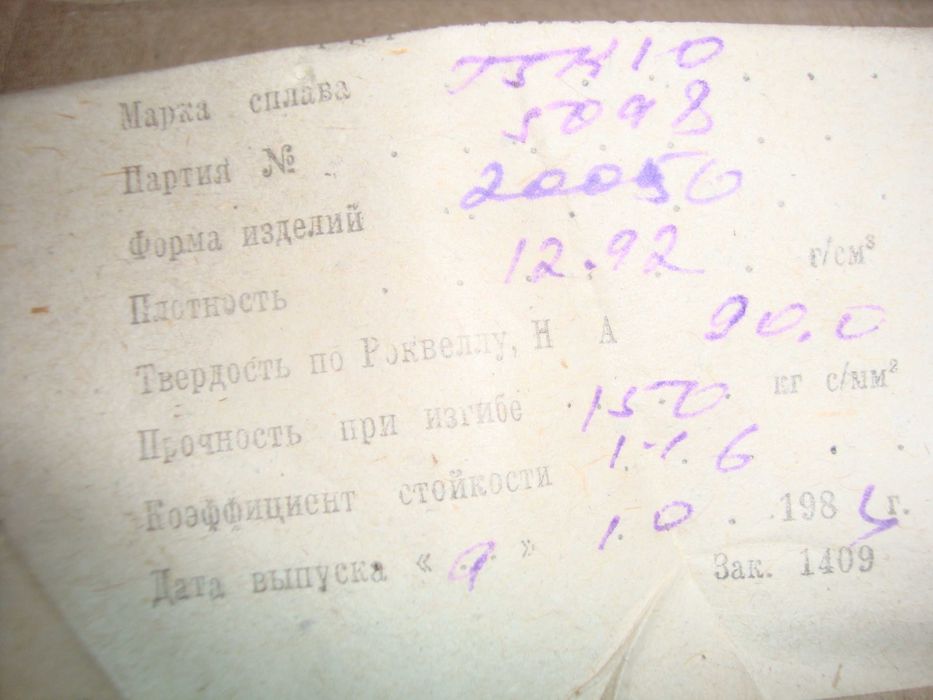 Марка сплава Т5К10
Партия № 5098
Форма изделий 20050
Плотность 12.92 г/см³
Твердость по Роквеллу, Н А 90.0
Прочность при изгибе 150 кг с/мм²
Коэффициент стойкости 1.16
Дата выпуска « 9 » 10. 198 г.
Зак. 1409